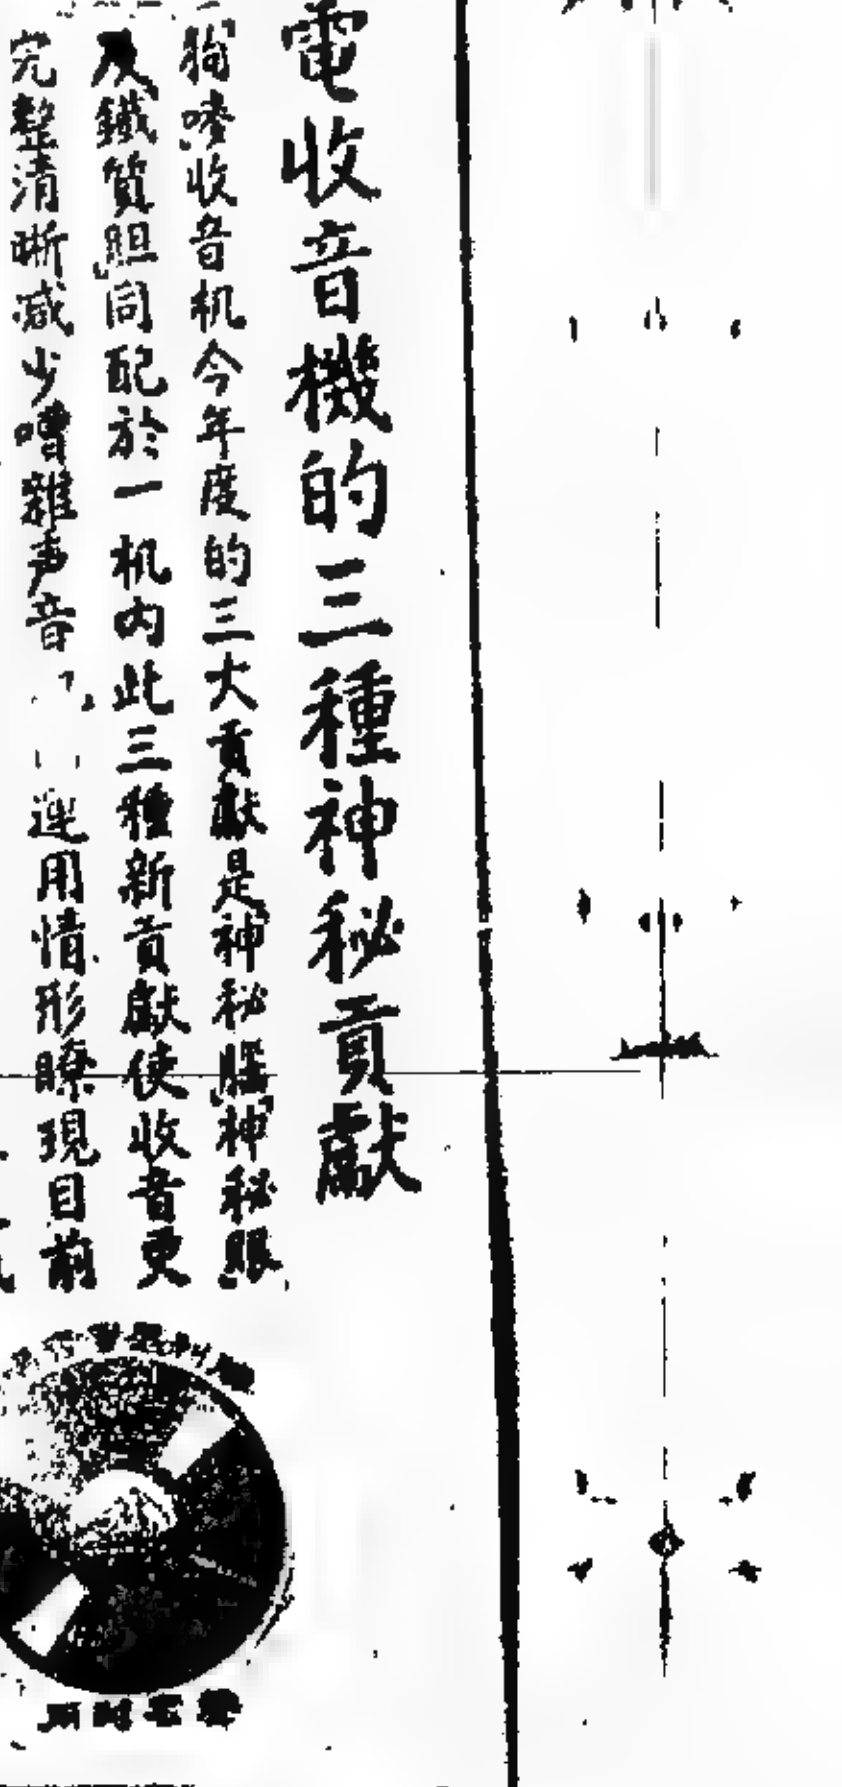 電收音機的三種神秘貢獻
狗嘜收音机今年度的三大貢獻是「神秘腦」「神秘眼」
及「鐵質胆」同配於一机内此三種新貢獻使收音更
完整清晰减少嘈雜声音 運用情形瞭現目前